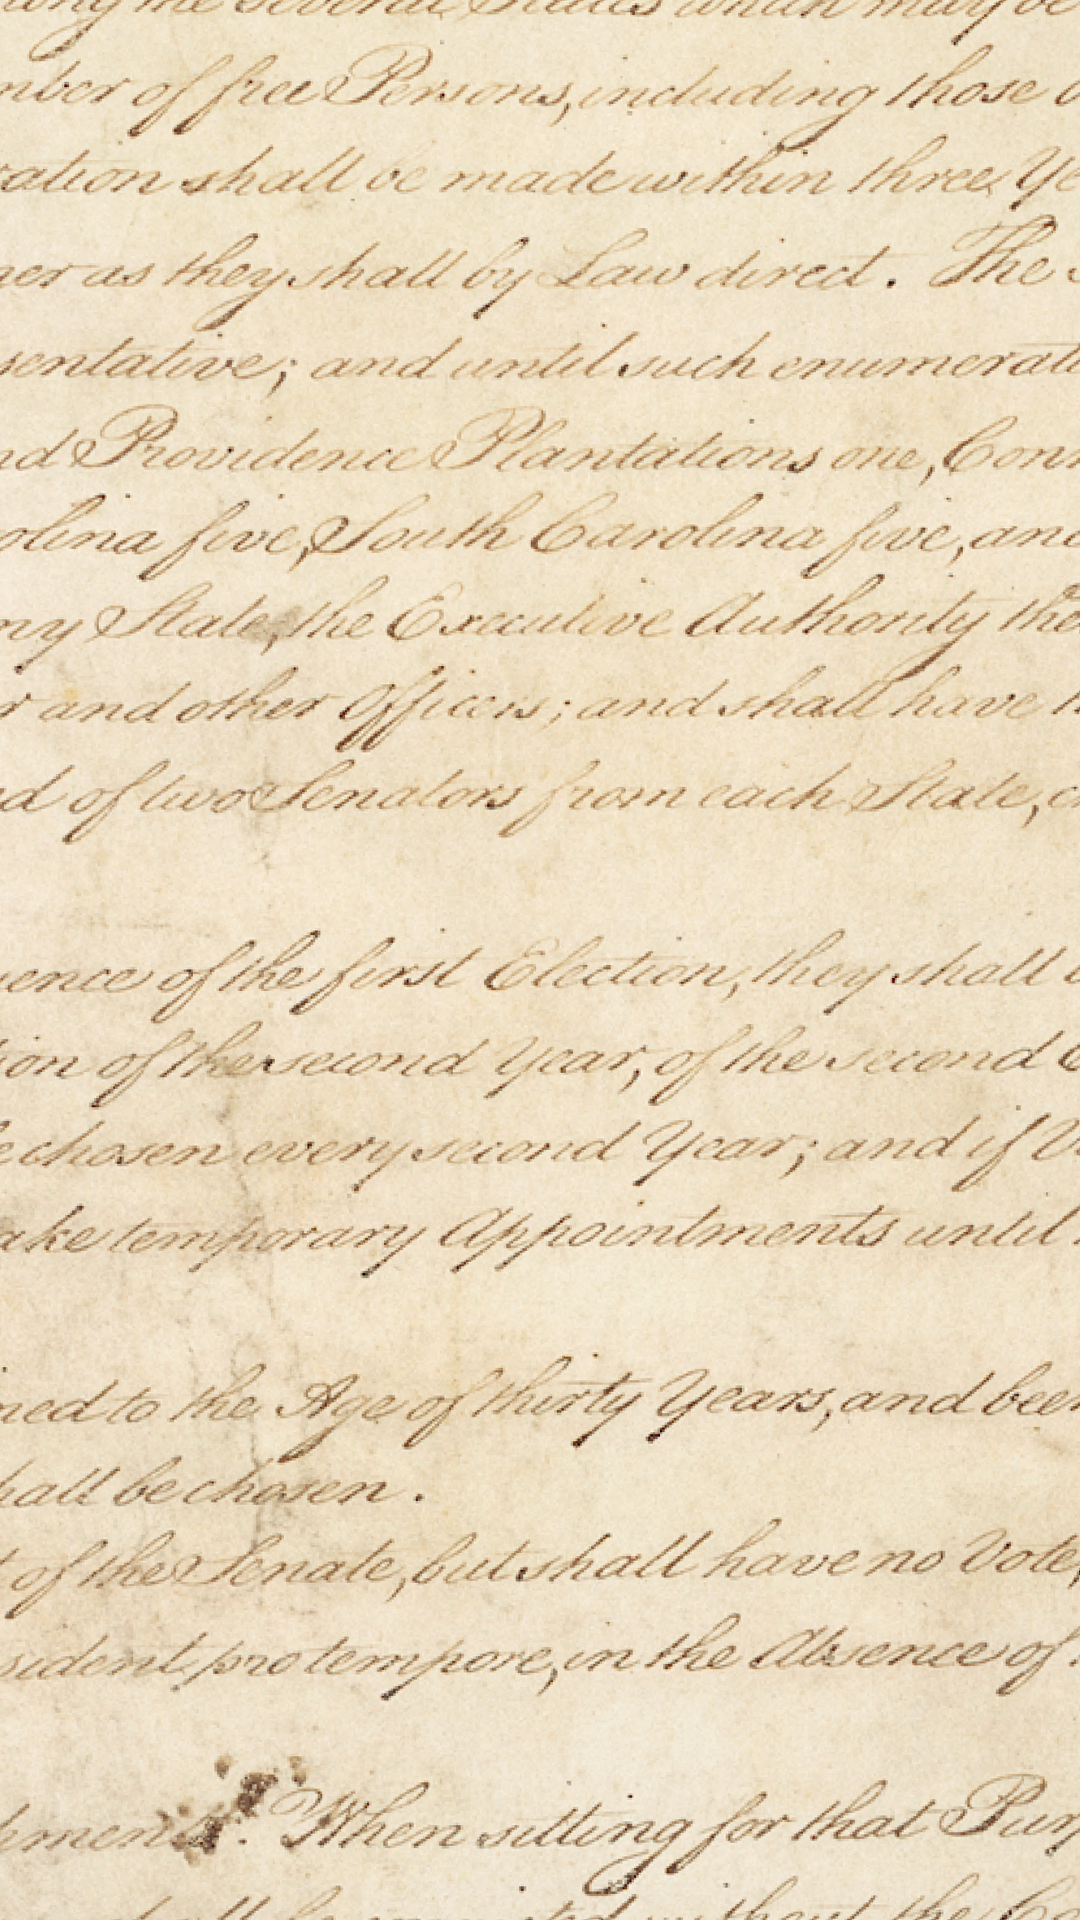 among the several States which may be
mber of free Persons, including those b
ration shall be made within three Ye
ner as they shall by Law direct. The
sentative; and until such enumerati
nd Providence Plantations one, Conn
rolina five, South Carolina five, and
ny State, the Executive Authority the
r and other Officers; and shall have
ed of two Senators from each State, c
uence of the first Election, they shall b
ion of the second Year, of the second C
be chosen every second Year; and if V
ake temporary Appointments until
ned to the Age of thirty Years, and been
hall be chosen.
t of the Senate, but shall have no Vote,
sident pro tempore, in the Absence of
hments. When sitting for that Purp
shall be convicted without the Co